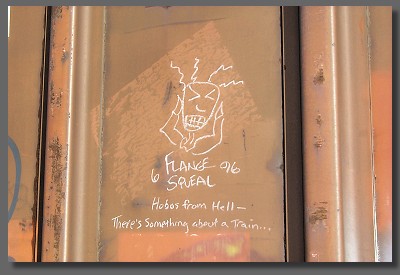 6 FLANGE 96
SQUEAL
Hobos from Hell—
There's Something about a Train...